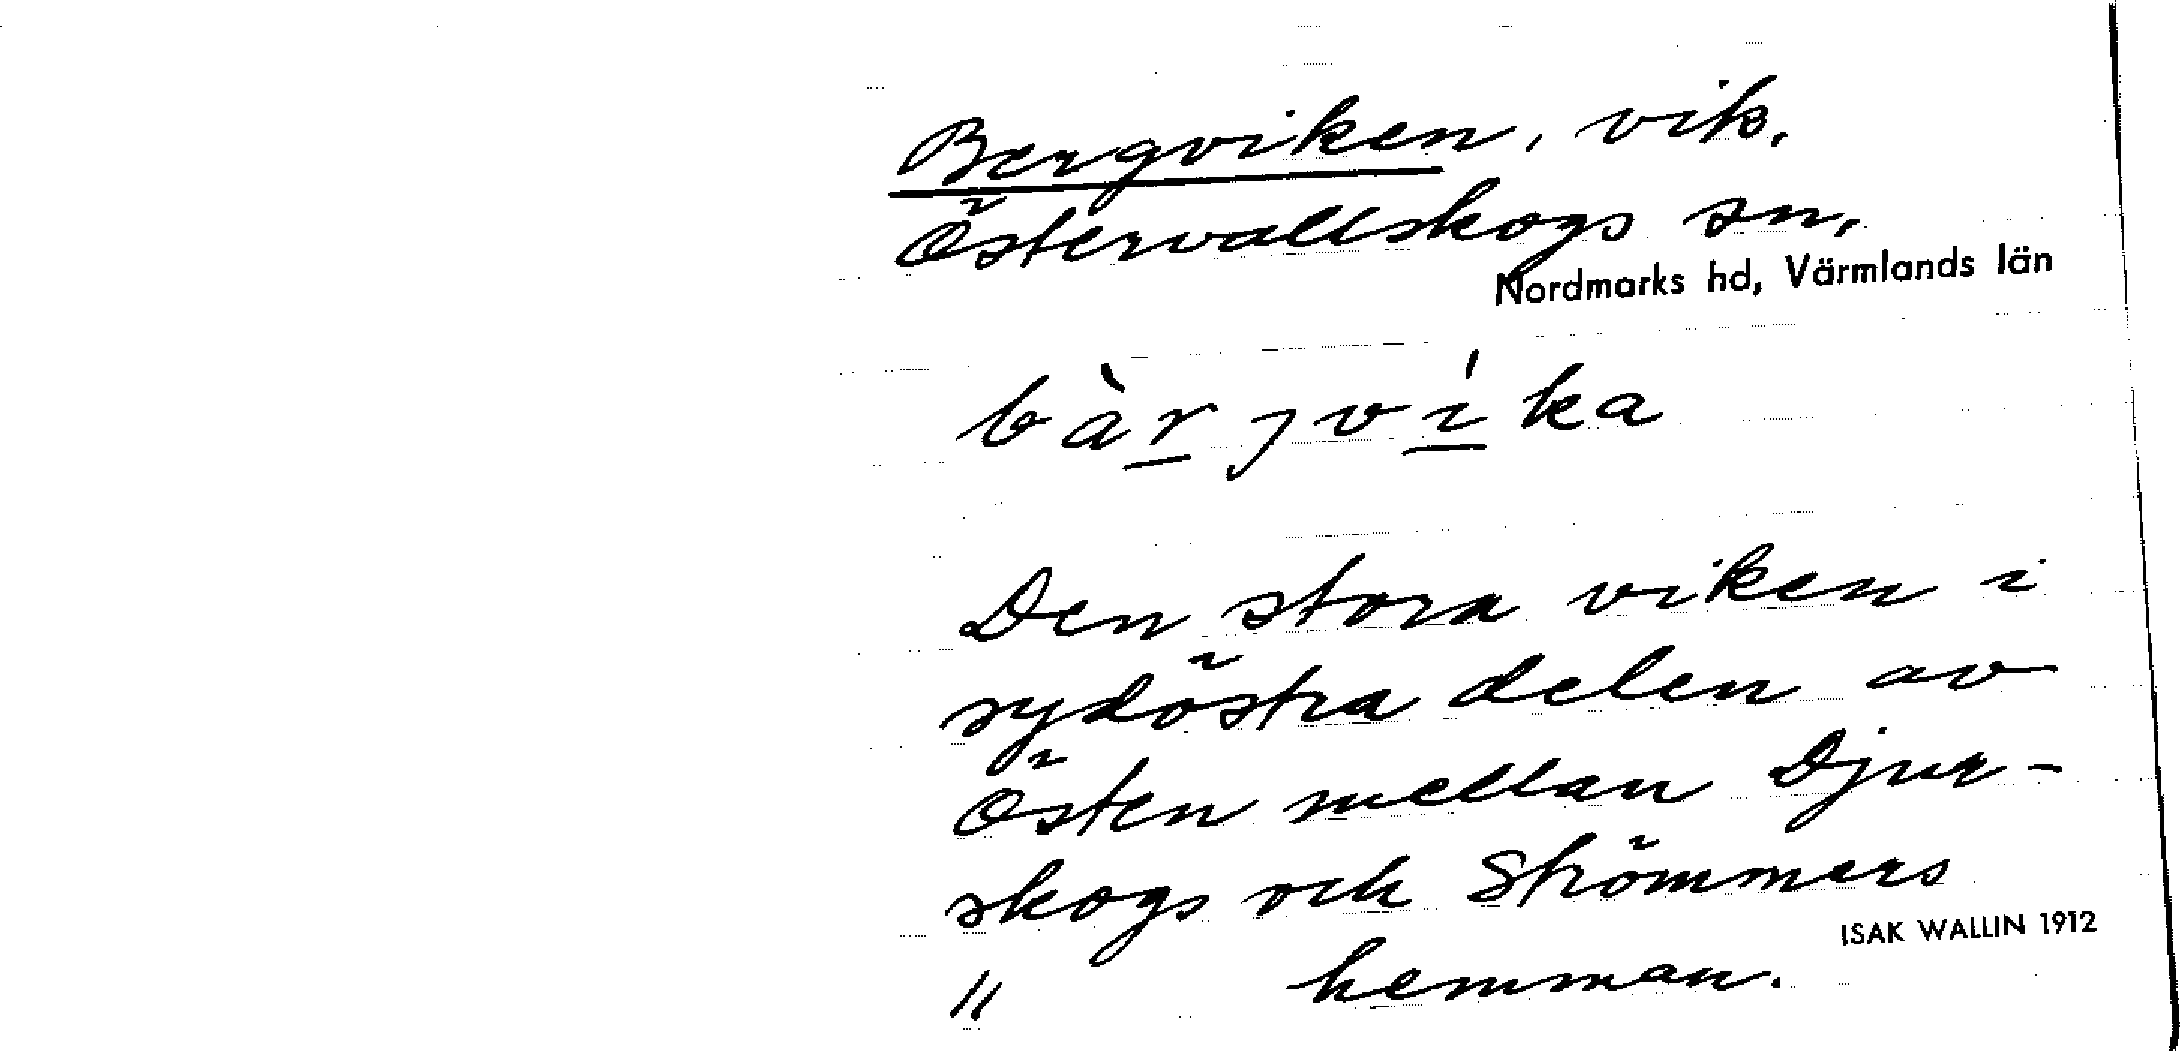 Bergviken, vik.
Östervallskogs sn,
Nordmarks hd, Värmlands län
bàrjvíka
Den stora viken i
sydöstra delen av
Östen mellan Djur-
skogs och Strömmers
ISAK WALLIN 1912
" hemman.